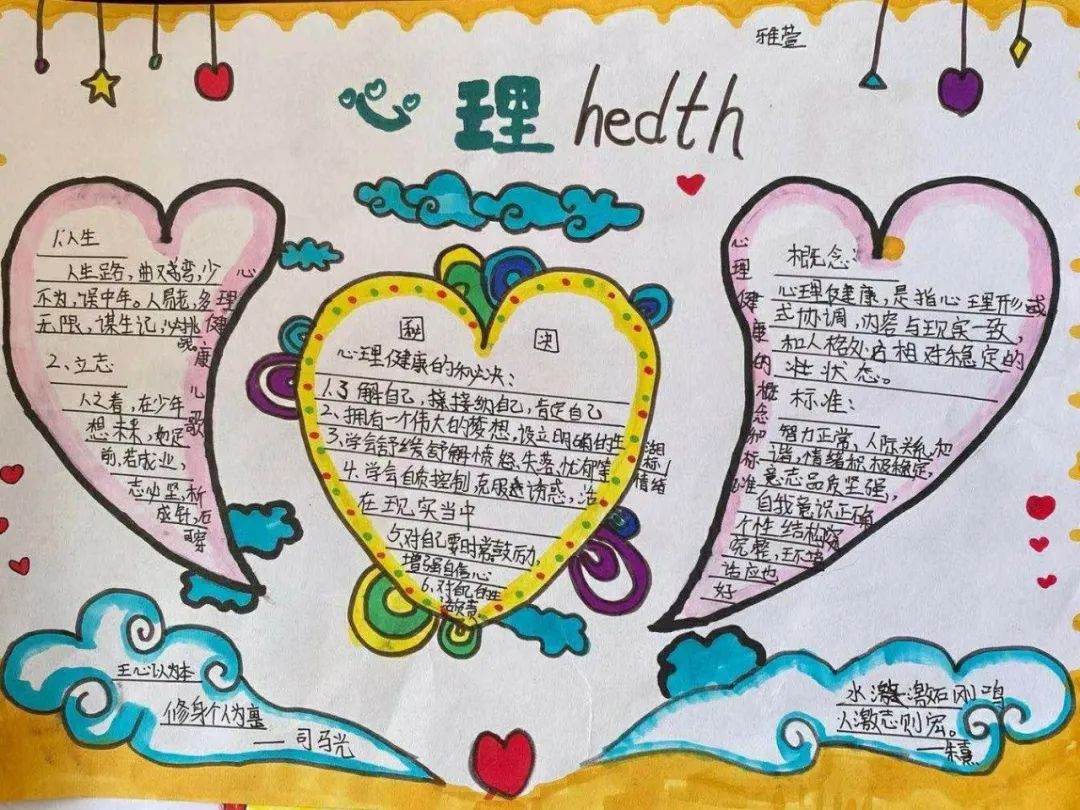 雅萱
心理 hedth
心理健康儿歌
1.人生
人生路,曲弯,少
不为,误中年。人易老,多
无限,谋生记,挑
2、立志
人之者,在少年
想未来,
前,若成业,
志必坚,析
成针,石
穿
秘 决
心理健康的秘诀:
1.了解自己,接纳自己,肯定自己
2、拥有一个伟大的梦想,设立明确的生
活目标
3.学会舒缓舒解愤怒、失落、忧郁等情绪
4.学会自质控制,克服诱惑,活
在现实当中
5.对自己要时常鼓励,
增强自信心
6.对自己的生
负责
心理健康的概念和标准
概念:
心理健康,是指心理形或
式协调,内容与现实一致,
和人格处方相对稳定的
状态。
标准:
智力正常、人际关系和
谐,情绪积极稳定,
意志品质坚强,
自我意识正确
个性结构
完整,环境
适应也
好
王心以为本
修身个人为
—司马光
水激激石则鸣
人激志则宏。
—朱熹